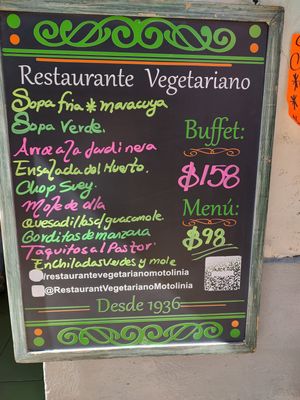 Restaurante Vegetariano
Sopa fria * maracuya
Sopa Verde.
Arroz a la Jardinera
Ensalada del Huerto.
Chop Suey.
Mole de olla
Quesadillas c/guacamole.
Gorditas de manzana
Taquitos al Pastor
Enchiladas Verdes y mole
Buffet:
$158
Menú:
$98
/restaurantevegetarianomotolinia
@RestaurantVegetarianoMotolinia
Desde 1936